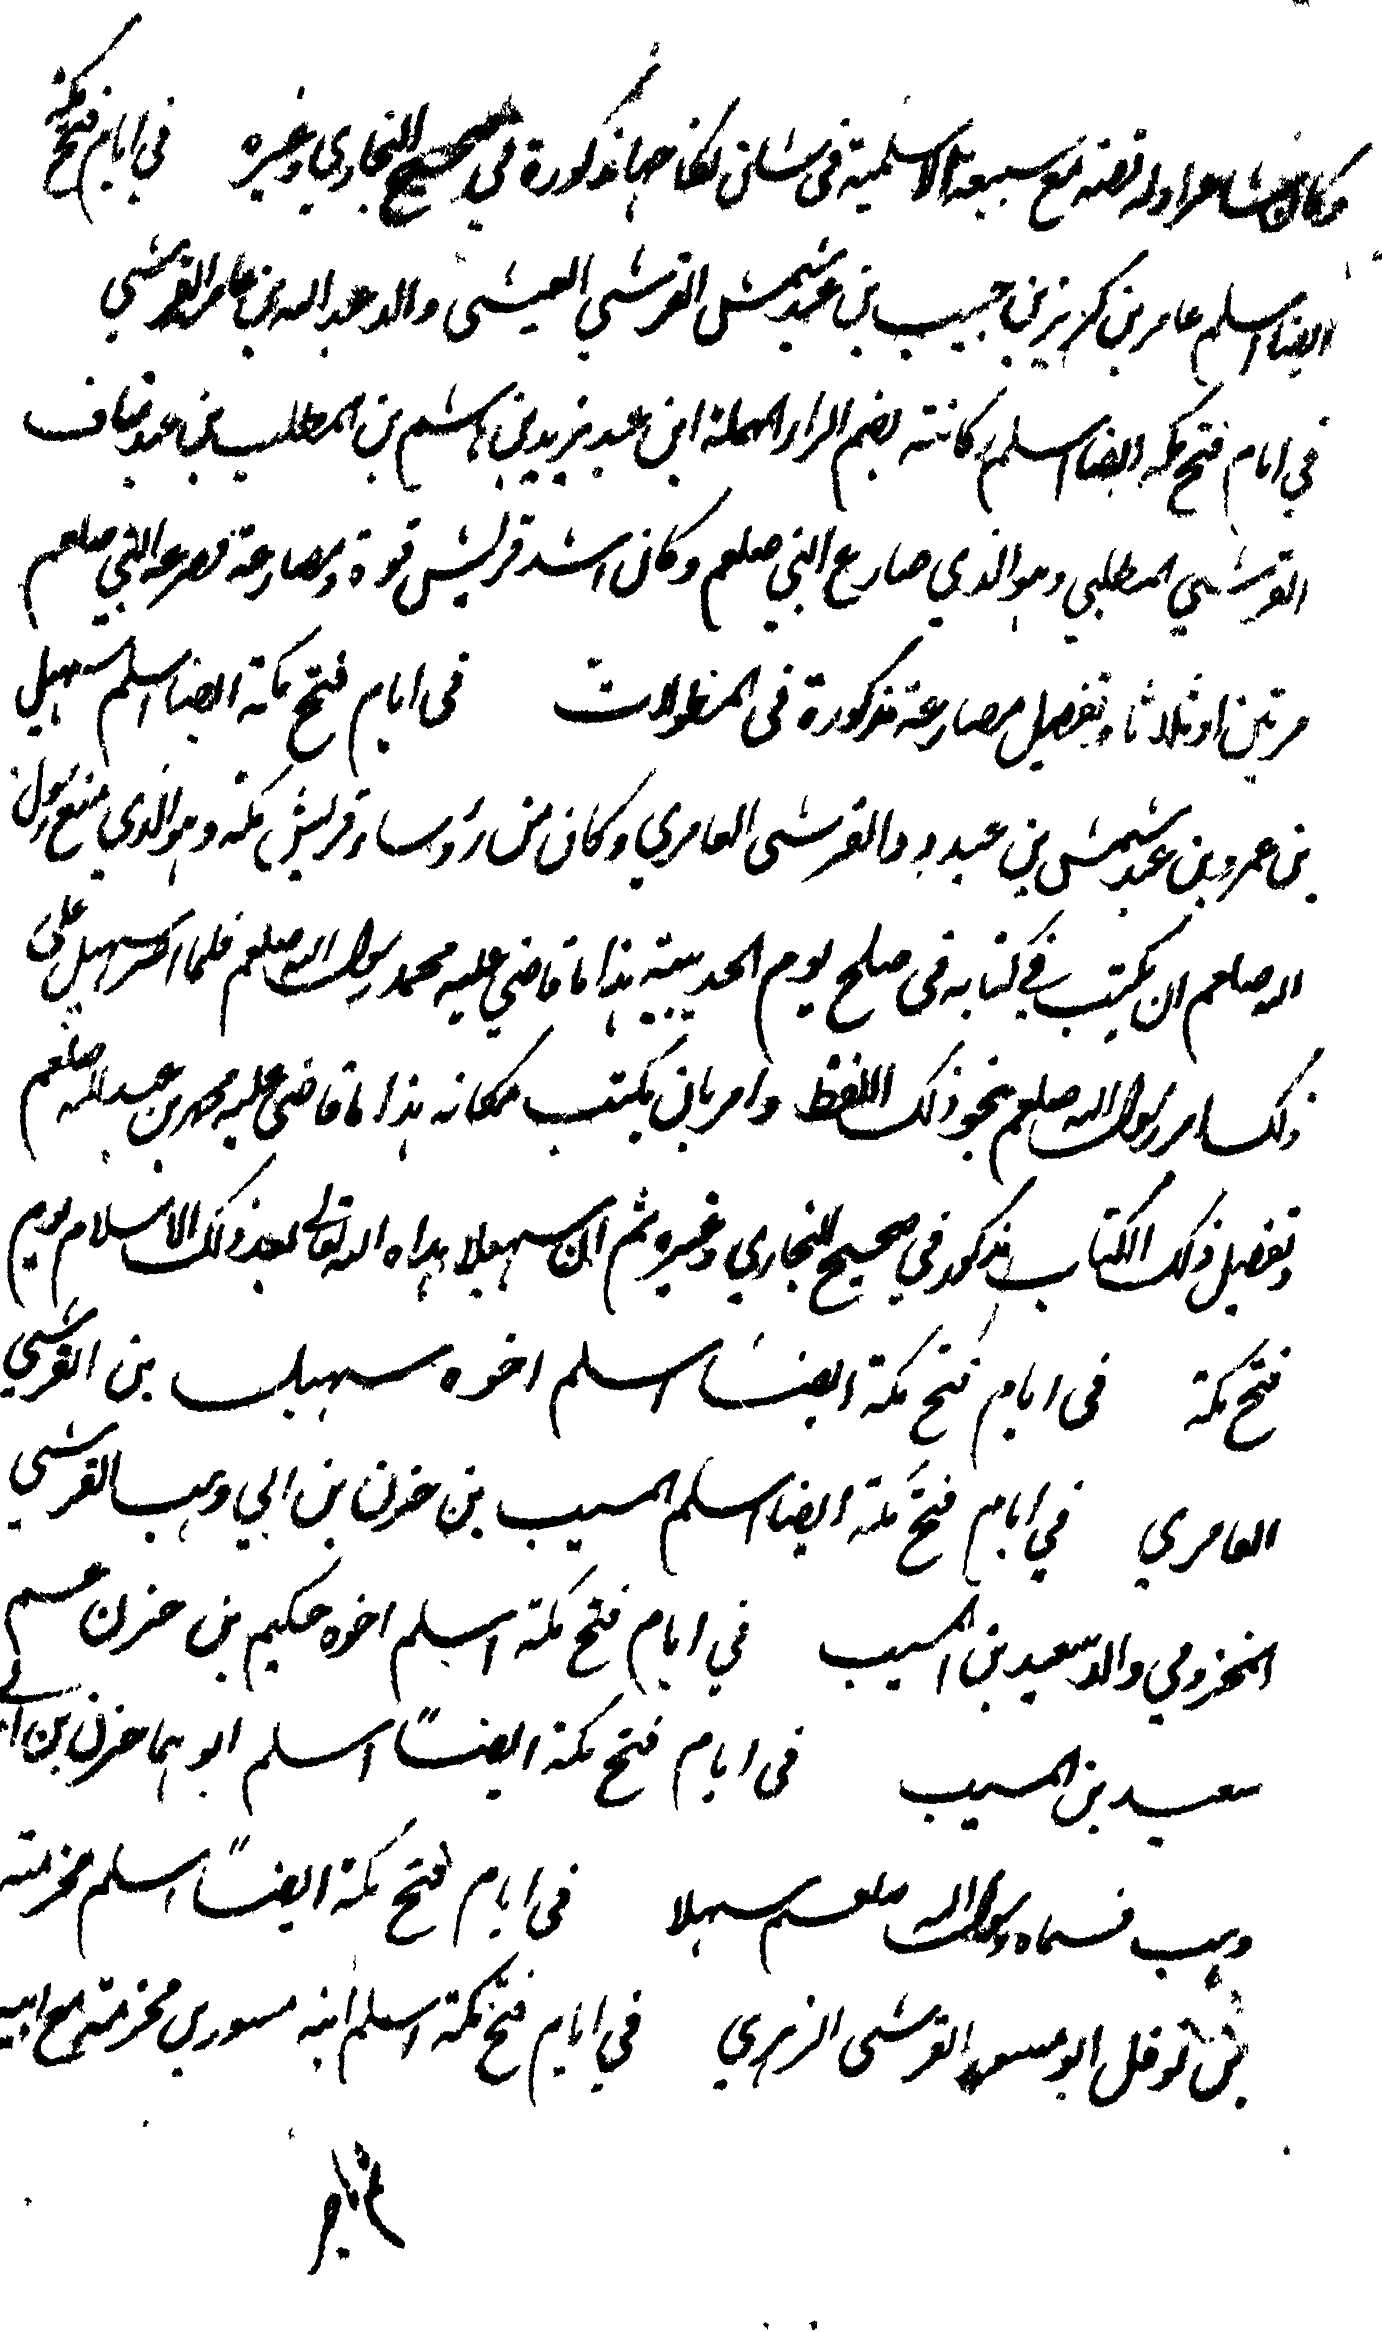 وكان شاعرا وله قصة مع سبيعة الاسلمية في شان نكاحها مذكورة في صحيح البخاري وغيره في ايام فتح مكة
ايضا اسلم عامر بن كريز بن حبيب بن عبد شمس القرشي العبشمي والد عبد الله بن عامر القرشي
في ايام فتح مكه ايضا اسلم ركانة بضم الراء المهملة ابن عبد يزيد بن هاشم بن المطلب بن عبد مناف
القرشي المطلبي وهو الذي صارع النبي صلعم وكان اشد قريش قوة ومصارعة فصرعه النبي صلعم
مرتين او ثلاثا وتفصيل مصارعته مذكورة في المطولات في ايام فتح مكة ايضا اسلم سهيل
بن عمرو بن عبد شمس بن عبد ود القرشي العامري وكان من رؤساء قريش مكة وهو الذي منع رسول
الله صلعم ان يكتب في كتابه في صلح يوم الحديبية هذا ما قاضي عليه محمد رسول الله صلعم فلما اكثر سهيل على
ذلك امر رسول الله صلعم بمحو ذلك اللفظ وامر بان يكتب مكانه هذا ما قاضى عليه محمد بن عبد الله صلعم
وتفصيل ذلك الكتاب مذكور في صحيح البخاري وغيره ثم ان سهيلا هداه الله تعالى بعد ذلك الاسلام يوم
فتح مكة في ايام فتح مكة ايضا اسلم اخوه سهيل بن القرشي
العامري في ايام فتح مكة ايضا اسلم المسيب بن حزن بن ابي وهب القرشي
المخزومي والد سعيد بن المسيب في ايام فتح مكة اسلم اخوه حكيم بن حزن عم
سعيد بن المسيب في ايام فتح مكة ايضا اسلم ابوهما حزن بن ابي
وهب فسماه رسول الله صلعم سهلا في ايام فتح مكة ايضا اسلم مخرمة
بن نوفل ابو مسور القرشي الزهري في ايام فتح مكة اسلم ابنه مسور بن مخرمة مع ابيه